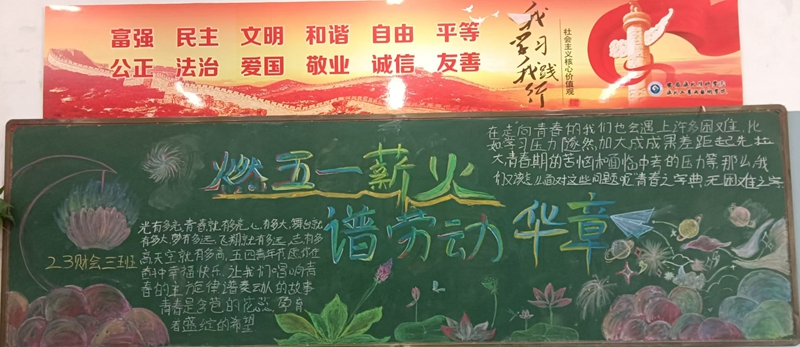 富强 民主 文明 和谐 自由 平等
公正 法治 爱国 敬业 诚信 友善
我学习我践行
社会主义核心价值观
燃五一薪火
谱劳动华章
23财会三班
光有多远,青春就有多远,心有多大,舞台就
有多大,梦有多远,飞翔就有多远,志有多
高天空就有多高,五四青年有愿你在
幸福快乐,让我们唱响青
春的主旋律谱奏动人的故事
青春是多色的花蕊,孕育
着盛绽的希望
在走向青春的我们也会遇上许多困难,比
如学习压力陡然加大成成果差距起先拉
大青春期的苦恼和面临中考的压力等,那么,我
们又该怎么面对这些问题呢青春之字典无困难之字